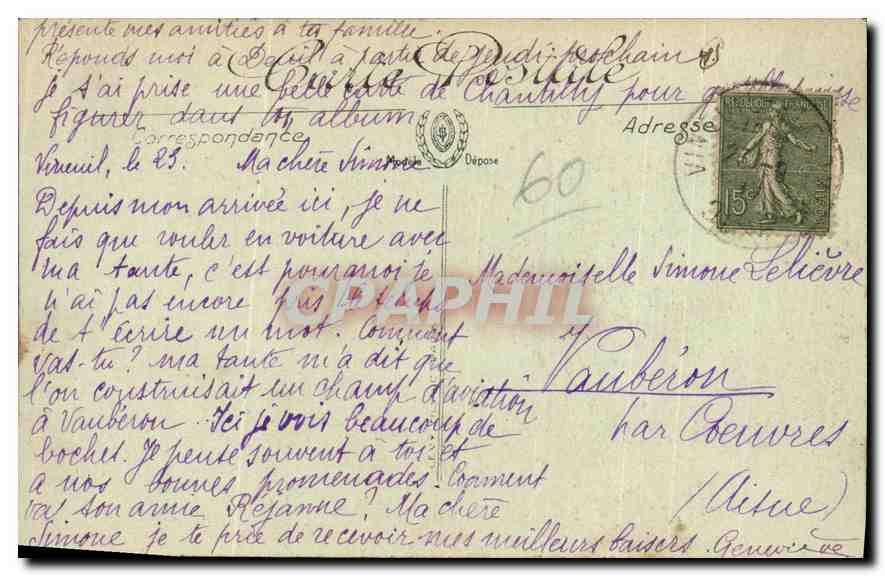 présente mes amitiés à ta famille.
Réponds moi à Deuil à partir de jeudi prochain
Carte Postale
je t'ai prise une belle carte de Chantilly pour qu'elle puisse
figurer dans ton album
Correspondance
Adresse
REPUBLIQUE FRANÇAISE
15c
Vineuil, le 23. Ma chère Simone
Modèle Déposé
60
Depuis mon arrivée ici, je ne
fais que rouler en voiture avec
ma tante, c'est pourquoi je
n'ai pas encore pris le temps
de t'écrire un mot. Comment
vas-tu? ma tante m'a dit que
l'on construisait un champ d'aviation
à Vaubéron. Ici je vois beaucoup de
boches. Je pense souvent à toi et
à nos bonnes promenades. Comment
vas ton amie Réjanne? Ma chère
Simone je te prie de recevoir mes meilleurs baisers. Geneviève
Mademoiselle Simone Lelièvre
Vaubéron
par Coeuvres
(Aisne)
CPAPHIL